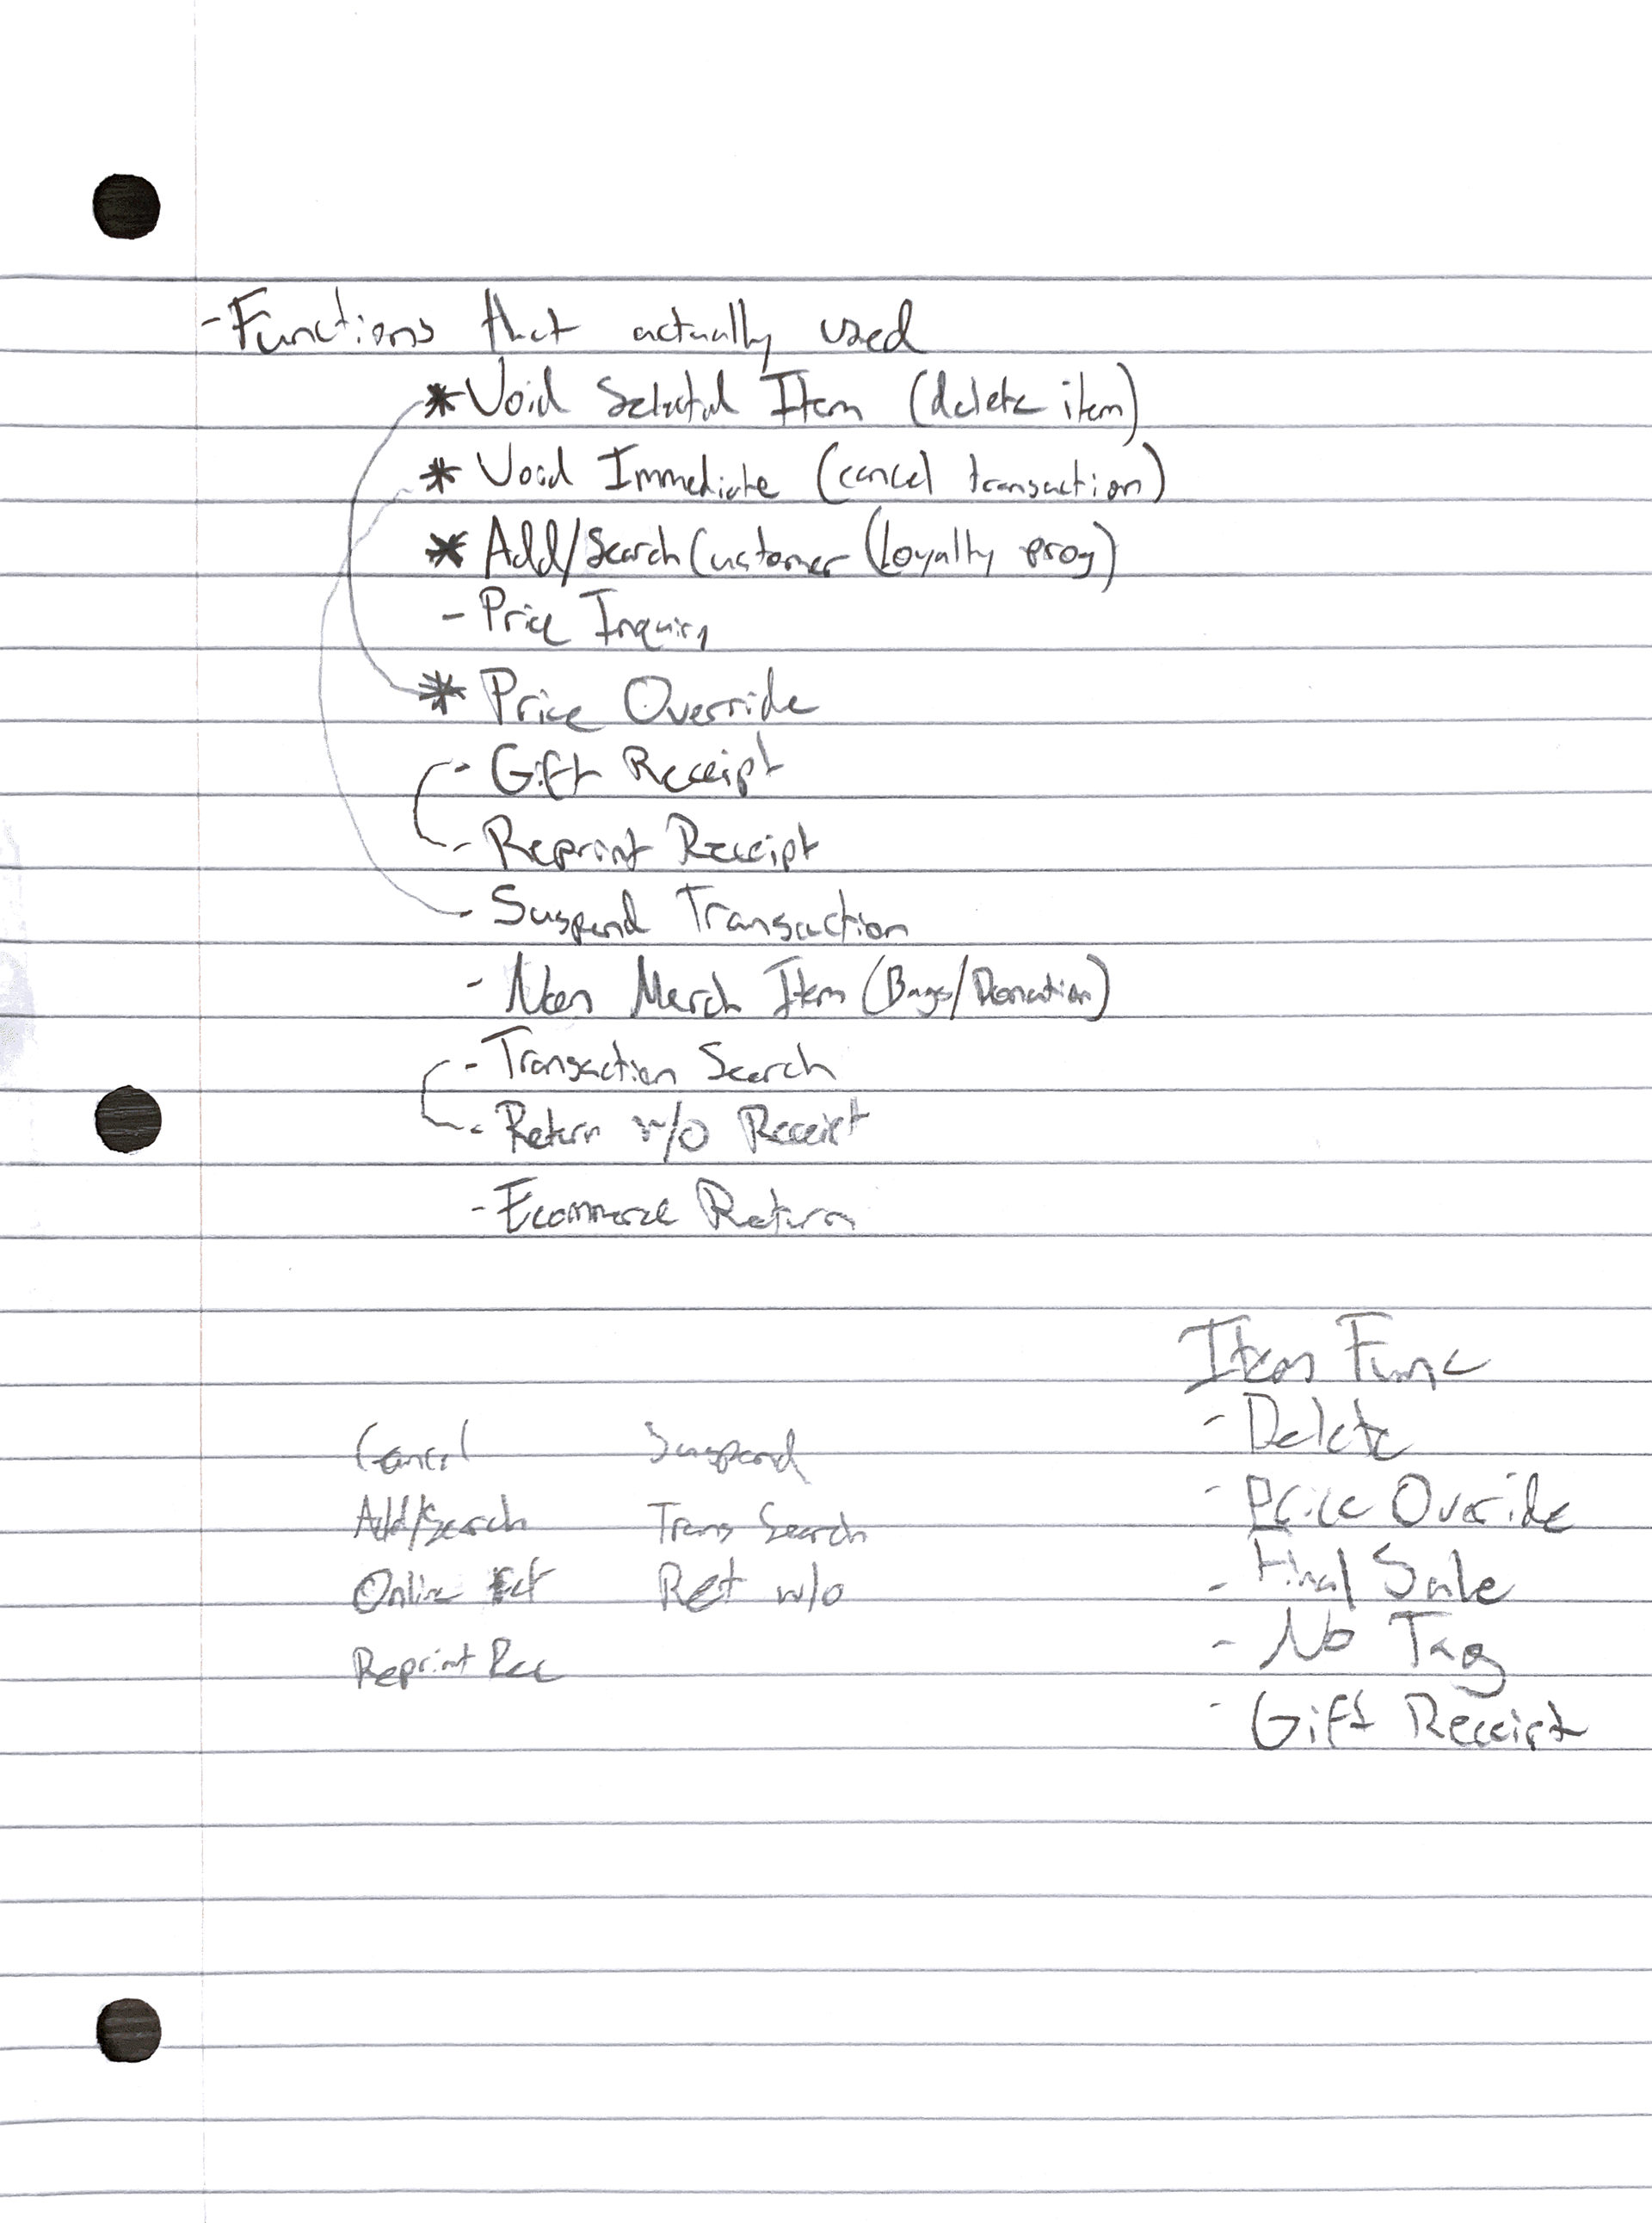 -Functions that actually used
* Void Selected Item (delete item)
* Void Immediate (cancel transaction)
* Add/Search Customer (Loyalty prog)
- Price Inquiry
* Price Override
- Gift Receipt
- Reprint Receipt
- Suspend Transaction
- Non Merch Item (Bags/Donation)
- Transaction Search
- Return w/o Receipt
- Ecommerce Return
Item Func
- Delete
- Price Override
- Final Sale
- No Tag
- Gift Receipt
Cancel Suspend
Add/Search Trans Search
Online Ret w/o
Reprint Rec